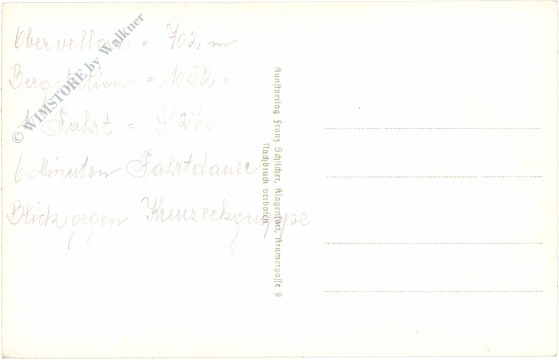 Obervellach = 702 m
Bergstation = 1052 "
1 Fahrt = S 2
6 Minuten Fahrtdauer
Blick gegen Kreuzeckgruppe
© WIMSTORE by Walkner
Kunstverlag Franz Schilcher, Klagenfurt, Kramergasse 9
Nachdruck verboten